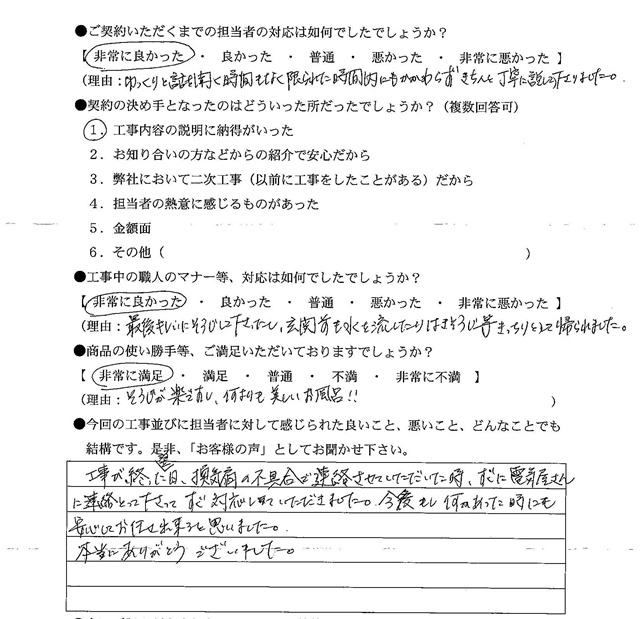 ●ご契約いただくまでの担当者の対応は如何でしたでしょうか?
【 非常に良かった ・ 良かった ・ 普通 ・ 悪かった ・ 非常に悪かった 】
(理由:ゆっくりと話を聞く時間もなく限られた時間内にもかかわらずきちんと丁寧に説明して下さりました。
●契約の決め手となったのはどういった所だったでしょうか?(複数回答可)
1.工事内容の説明に納得がいった
2.お知り合いの方などからの紹介で安心だから
3.弊社において二次工事(以前に工事をしたことがある)だから
4.担当者の熱意に感じるものがあった
5.金額面
6.その他( )
●工事中の職人のマナー等、対応は如何でしたでしょうか?
【 非常に良かった ・ 良かった ・ 普通 ・ 悪かった ・ 非常に悪かった 】
(理由:最後キレイにそうじして下さったし、玄関前も水を流したりはきそうじ等きっちりとして帰られました。
●商品の使い勝手等、ご満足いただいておりますでしょうか?
【 非常に満足 ・ 満足 ・ 普通 ・ 不満 ・ 非常に不満 】
(理由:そうじが楽ですし、何よりも美しいお風呂!! )
●今回の工事並びに担当者に対して感じられた良いこと、悪いこと、どんなことでも
結構です。是非、「お客様の声」としてお聞かせ下さい。
工事が終った翌日、換気扇の不具合で連絡させていただいた時、すぐに電気屋さん
に連絡とって下さってすぐ対応して いただきました。今後もし何かあった時にも
安心してお任せ出来ると思いました。
本当にありがとうございました。